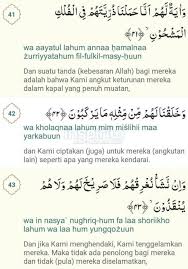 41
وَآيَةٌ لَهُمْ أَنَّا حَمَلْنَا ذُرِّيَّتَهُمْ فِي الْفُلْكِ
الْمَشْحُونِ ﴿٤١﴾
wa aayatul lahum annaa ḥamalnaa
żurriyyatahum fil-fulkil-masy-ḥuun
Dan suatu tanda (kebesaran Allah) bagi mereka
adalah bahwa Kami angkut keturunan mereka dalam
kapal yang penuh muatan,
42
وَخَلَقْنَا لَهُمْ مِنْ مِثْلِهِ مَا يَرْكَبُونَ ﴿٤٢﴾
wa kholaqnaa lahum mim miślihii maa
yarkabuun
dan Kami ciptakan (juga) untuk mereka (angkutan
lain) seperti apa yang mereka kendarai.
43
وَإِنْ نَشَأْ نُغْرِقْهُمْ فَلَا صَرِيخَ لَهُمْ وَلَا هُمْ
يُنْقَذُونَ ﴿٤٣﴾
wa in nasya\` nughriq-hum fa laa shoriikho
lahum wa laa hum yungqożuun
Dan jika Kami menghendaki, Kami tenggelamkan
mereka. Maka tidak ada penolong bagi mereka dan
tidak (pula) mereka diselamatkan,